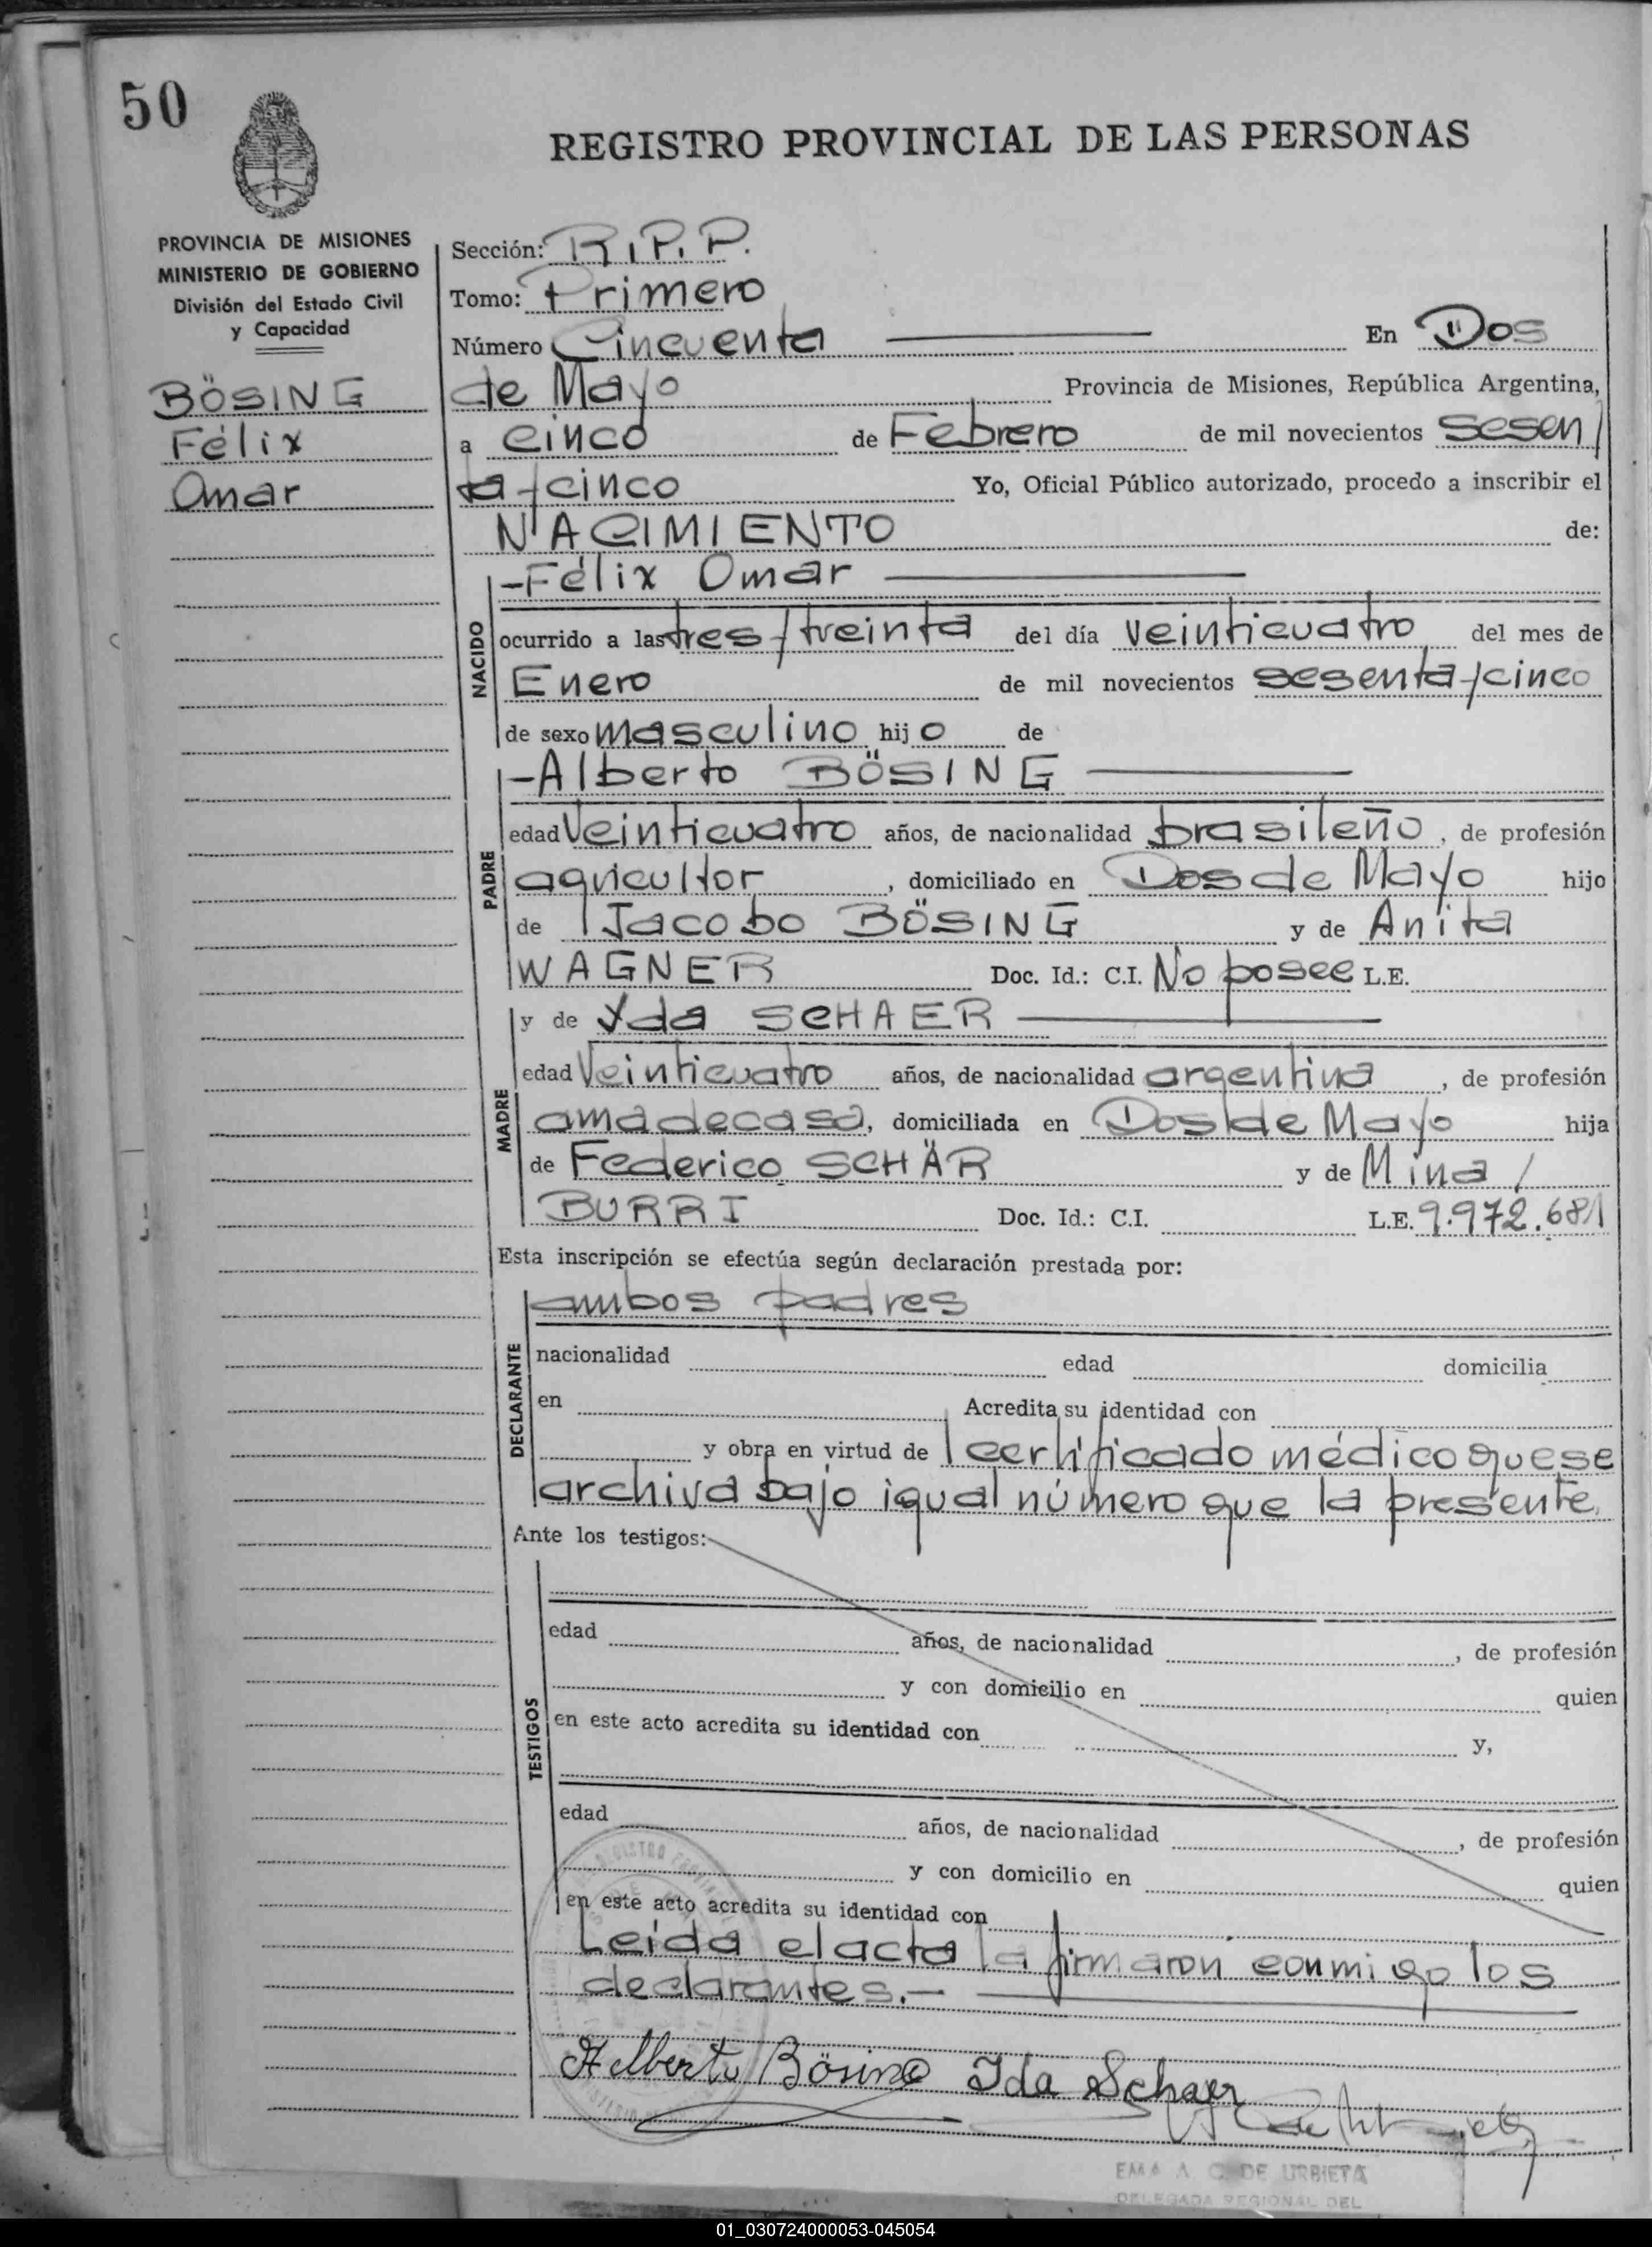 50
REGISTRO PROVINCIAL DE LAS PERSONAS
PROVINCIA DE MISIONES
MINISTERIO DE GOBIERNO
División del Estado Civil
y Capacidad
BÖSING
Félix
Omar
Sección: R.P.P.
Tomo: Primero
Número Cincuenta En Dos
de Mayo Provincia de Misiones, República Argentina,
a cinco de Febrero de mil novecientos sesen/
ta y cinco Yo, Oficial Público autorizado, procedo a inscribir el
NACIMIENTO de:
NACIDO
-Félix Omar
ocurrido a las tres/treinta del día veinticuatro del mes de
Enero de mil novecientos sesenta y cinco
de sexo masculino hijo de
PADRE
-Alberto BÖSING
edad veinticuatro años, de nacionalidad brasileño, de profesión
agricultor, domiciliado en Dos de Mayo hijo
de Jacobo BÖSING y de Anita
WAGNER Doc. Id.: C.I. No posee L.E.
MADRE
y de Yda SCHAER
edad veinticuatro años, de nacionalidad argentina, de profesión
ama de casa, domiciliada en Dos de Mayo hija
de Federico SCHÄR y de Mina/
BURRI Doc. Id.: C.I. L.E. 9.972.681
Esta inscripción se efectúa según declaración prestada por:
DECLARANTE
ambos padres
nacionalidad edad domicilia
en Acredita su identidad con
y obra en virtud de certificado médico que se
archiva bajo igual número que la presente.
Ante los testigos:
TESTIGOS
edad años, de nacionalidad , de profesión
y con domicilio en quien
en este acto acredita su identidad con y,
edad años, de nacionalidad , de profesión
y con domicilio en quien
en este acto acredita su identidad con
Leida el acta la firmaron conmigo los
declarantes.-
Alberto Bösing Ida Schaer
EMA A C. DE URBIETA
DELEGADA REGIONAL DEL
01_030724000053-045054